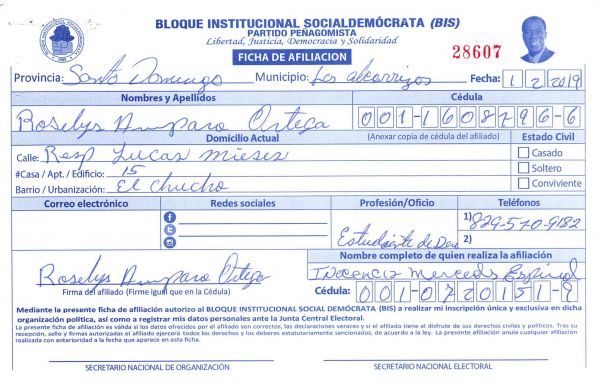 BLOQUE INSTITUCIONAL SOCIALDEMÓCRATA (BIS)
PARTIDO PEÑAGOMISTA
Libertad, Justicia, Democracia y Solidaridad
FICHA DE AFILIACION
28607
Provincia: Santo Domingo Municipio: Los alcarrizos Fecha: 1 2 2019
Nombres y Apellidos Cédula
Roselys Amparo Ortega 001-1608796-6
Domicilio Actual (Anexar copia de cédula del afiliado) Estado Civil
Calle: Resp Lucas mieses Casado
#Casa / Apt. / Edificio: 15 Soltero
Barrio / Urbanización: El Chucho Conviviente
Correo electrónico Redes sociales Profesión/Oficio Teléfonos
1) 829-570-9182
Estudiante de 2)
Nombre completo de quien realiza la afiliación
Roselys Amparo Ortega Inocencia Merceds Espinal
Firma del afiliado (Firme igual que en la Cédula) Cédula: 001-0720151-9
Mediante la presente ficha de afiliación autorizo al BLOQUE INSTITUCIONAL SOCIAL DEMÓCRATA (BIS) a realizar mi inscripción única y exclusiva en dicha
organización política, así como a registrar mis datos personales ante la Junta Central Electoral.
La presente ficha de afiliación es válida si los datos ofrecidos por el afiliado son correctos, las declaraciones veraces y si el afiliado tiene el disfrute de sus derechos civiles y políticos. Tras su
recepción, sello y firmas autorizadas el afiliado ejercerá todos los derechos y los deberes estatutariamente sancionados, de acuerdo a la ley. La presente afiliación anula cualquier afiliación
realizada con anterioridad a la fecha que aparece en esta ficha.
SECRETARIO NACIONAL DE ORGANIZACIÓN SECRETARIO NACIONAL ELECTORAL